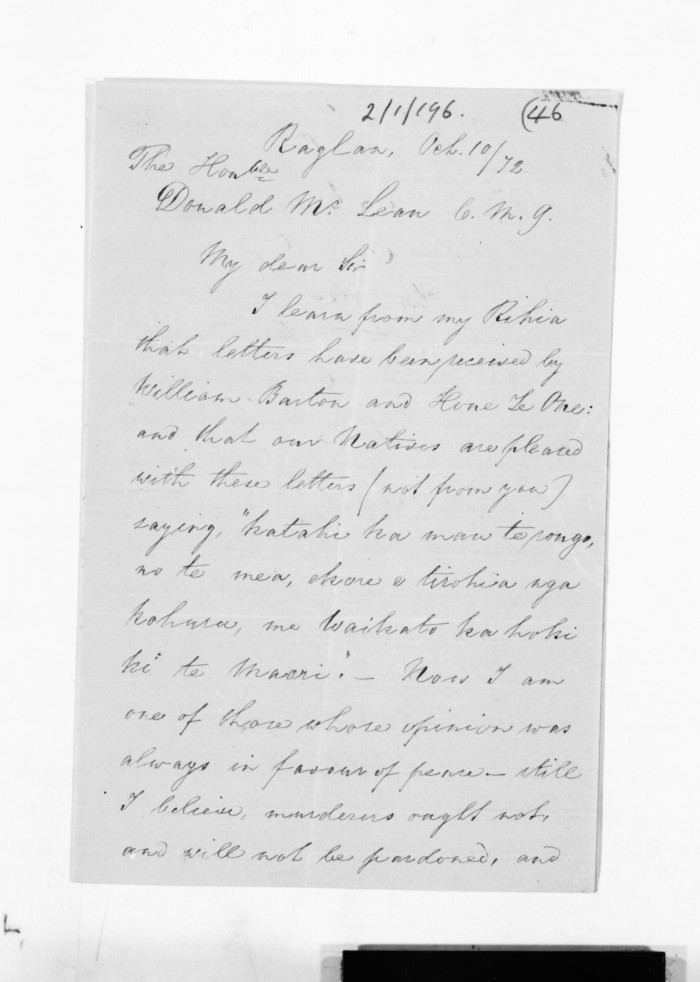 2/1/196. (46
Raglan, Oct. 10/72
The Honble
Donald Mc Lean C. M. G.
My dear Sir
I learn from my Rihia
that letters have been received by
William Barton and Hone Te One:
and that our Natives are pleased
with these letters (not from you)
saying, "katahi ka mau te rongo,
no te mea, ekore e tirohia nga
kohuru, me Waikato ka hoki
ki te Maori". — Now I am
one of those whose opinion was
always in favour of peace — still
I believe, murderers ought not,
and will not be pardoned, and